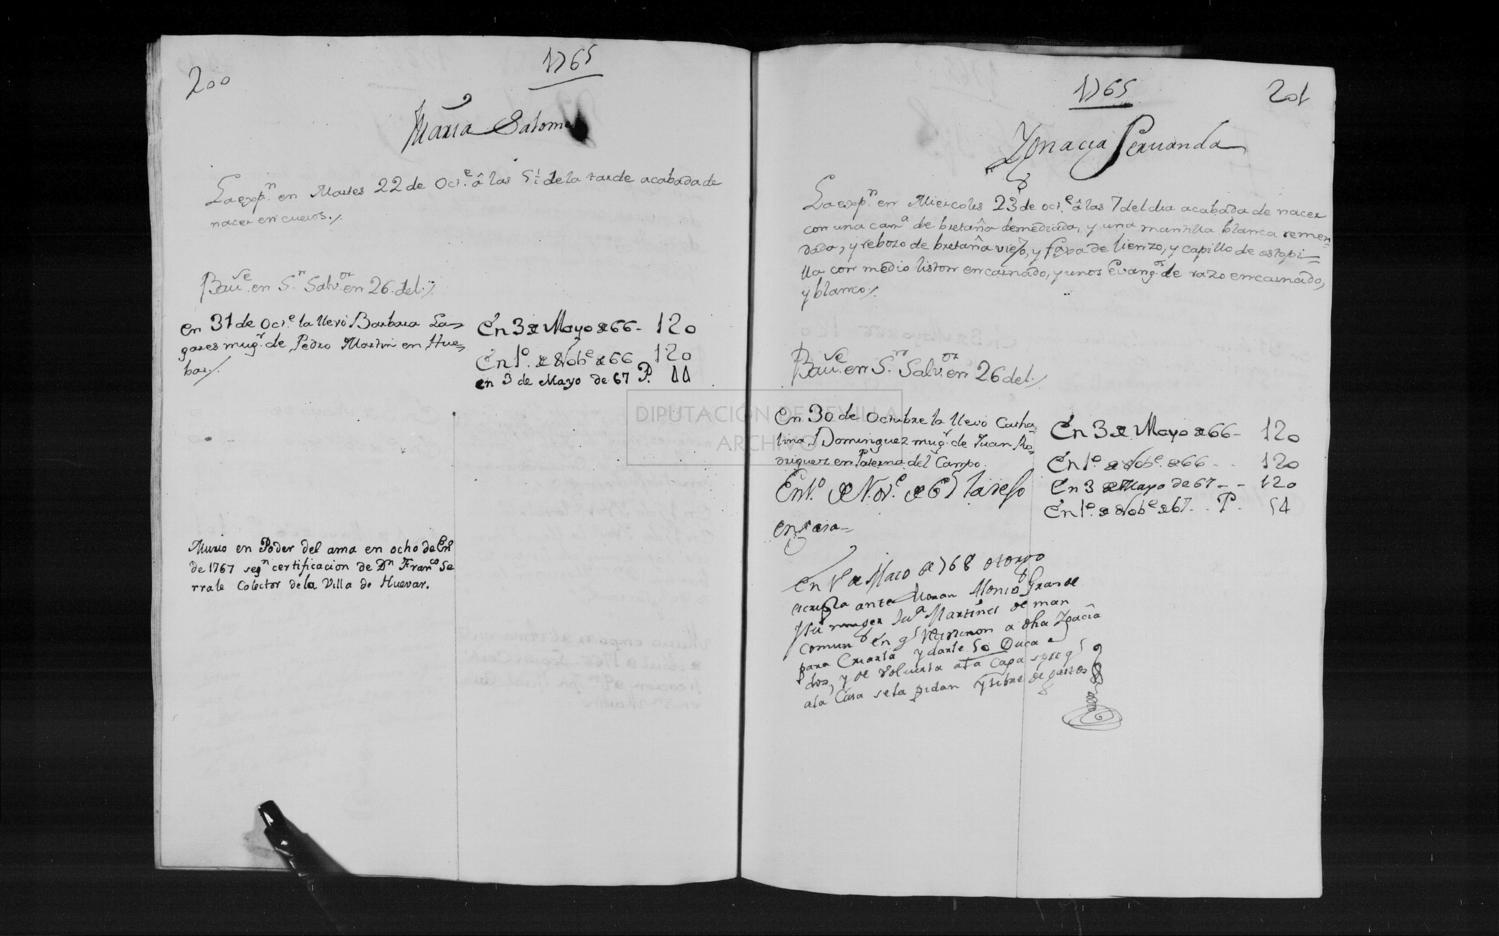 200
1765
Maria Salome
La exp.n en Martes 22 de Oct.e â las 5 1/2 de la tarde acabada de
nacer en cueros./
Bau.se en S.n Salv.or en 26. del./
En 31 de Oct.e la llevó Barbara La-
gares mug.r de Pedro Martin en Hue-
bar./
En 3 de Mayo de 66 - 120
En 1.o de Nob.e de 66 120
en 3 de Mayo de 67 P. 44
Murio en Poder del ama en ocho de En.o
de 1767 seg.n certificacion de D.n Fran.co Se
rrate Colector de la Villa de Huevar.
1765
201
Ygnacia Servanda
La exp.n en Miercoles 23 de oct.e â las 7 del dia acabada de nacer
con una cam.a de bretaña demediada, y una mantilla blanca remen-
dada, y rebozo de bretaña viejo, y faxa de lienzo, y capillo de estopi-
lla con medio liston encarnado, y unos Evang.os de razo encarnado,
y blanco./
Bau.se en S.n Salv.or en 26 del./
En 30 de Octubre la llevó Catha-
lina Dominguez mug.r de Juan Ro-
driguez en Paterna del Campo.
En 1.o de Nov.e de 67 la
en casa
En 3 de Mayo de 66 - 120
En 1.o de Nob.e de 66 - - 120
En 3 de Mayo de 67 - - 120
En 1.o de Nob.e de 67 - P. 54
En de Marzo de 768 otorgo
escrip.a ante Moran Alonso Grande
y su muger Ju.a Martines de man
comun en q.e recivieron a dha Ygnacia
para Criarla y darle 50 Duca
dos, y de volverla a la
a la Casa se la pidan y libre de gastos
DIPUTACIÓN DE SEVILLA
ARCHIVO